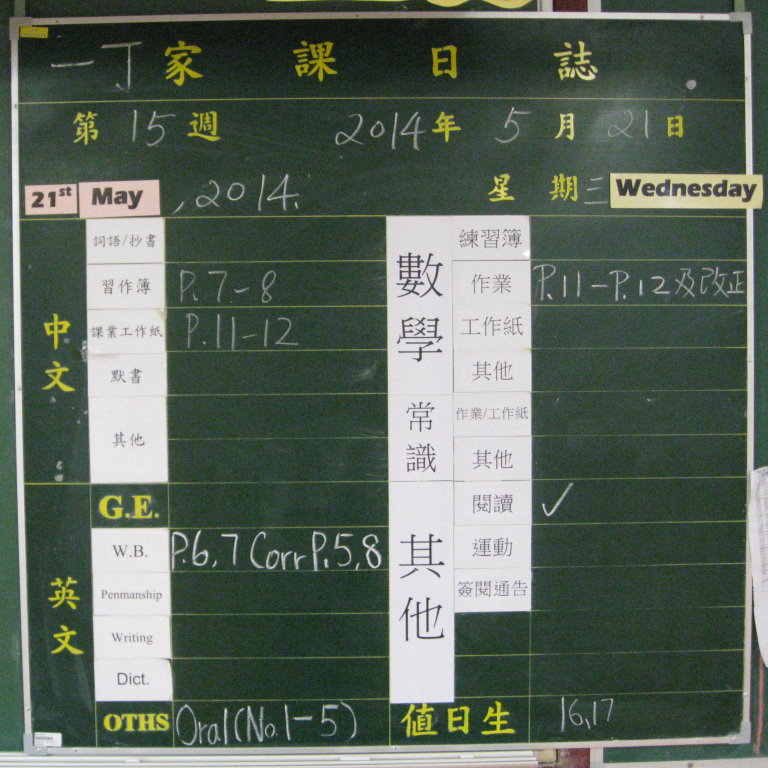 一丁家課日誌
第15週 2014年5月21日
21st May , 2014. 星期三 Wednesday
中文
詞語/抄書
習作簿 P.7-8
課業工作紙 P.11-12
默書
其他
英文
G.E.
W.B. P.6,7 Corr P.5,8
Penmanship
Writing
Dict.
OTHS Oral (No.1-5)
數學
練習簿
作業 P.11-P.12及改正
工作紙
其他
常識
作業/工作紙
其他
其他
閱讀 ✓
運動
簽閱通告
値日生 16,17